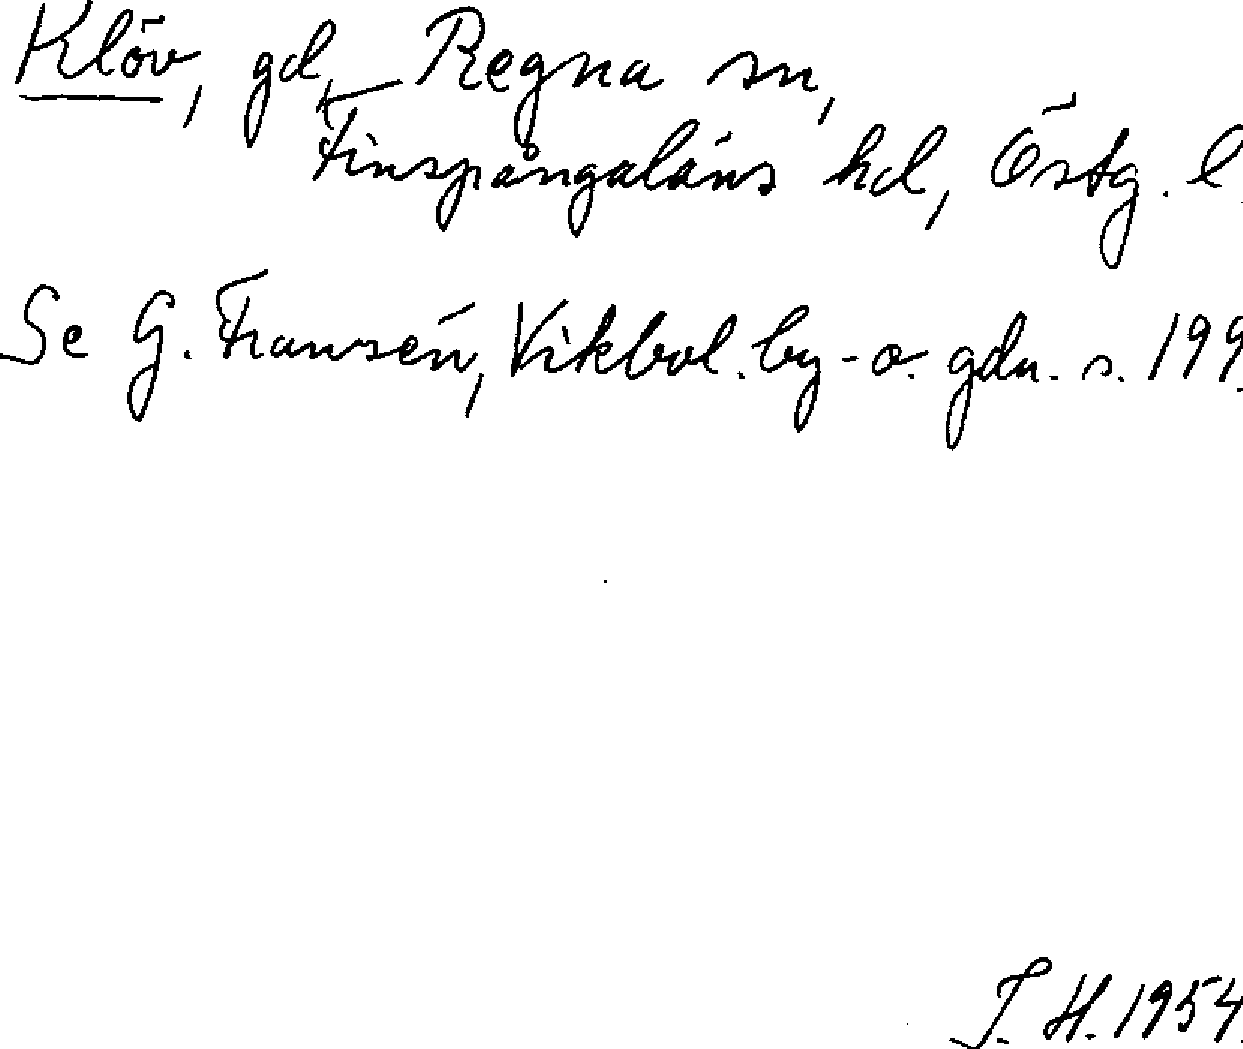 Klöv, gd, Regna sn,
Finspångaläns hd, Östg. l.
Se G. Franzén, Vikbol. by- o. gdn. s. 199.
T. H. 1954.